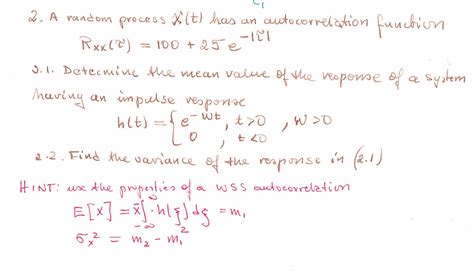 2. A random process X(t) has an autocorrelation function
R_XX(τ) = 100 + 25 e^{-|τ|}
2.1. Determine the mean value of the response of a system
having an impulse response
h(t) = { e^{-Wt}, t>0 , W>0
0 , t<0
2.2. Find the variance of the response in (2.1)
HINT: use the properties of a WSS autocorrelation
E[X] = X̄ ∫_{-∞}^{∞} h(ξ) dξ = m₁
σ_x² = m₂ - m₁²